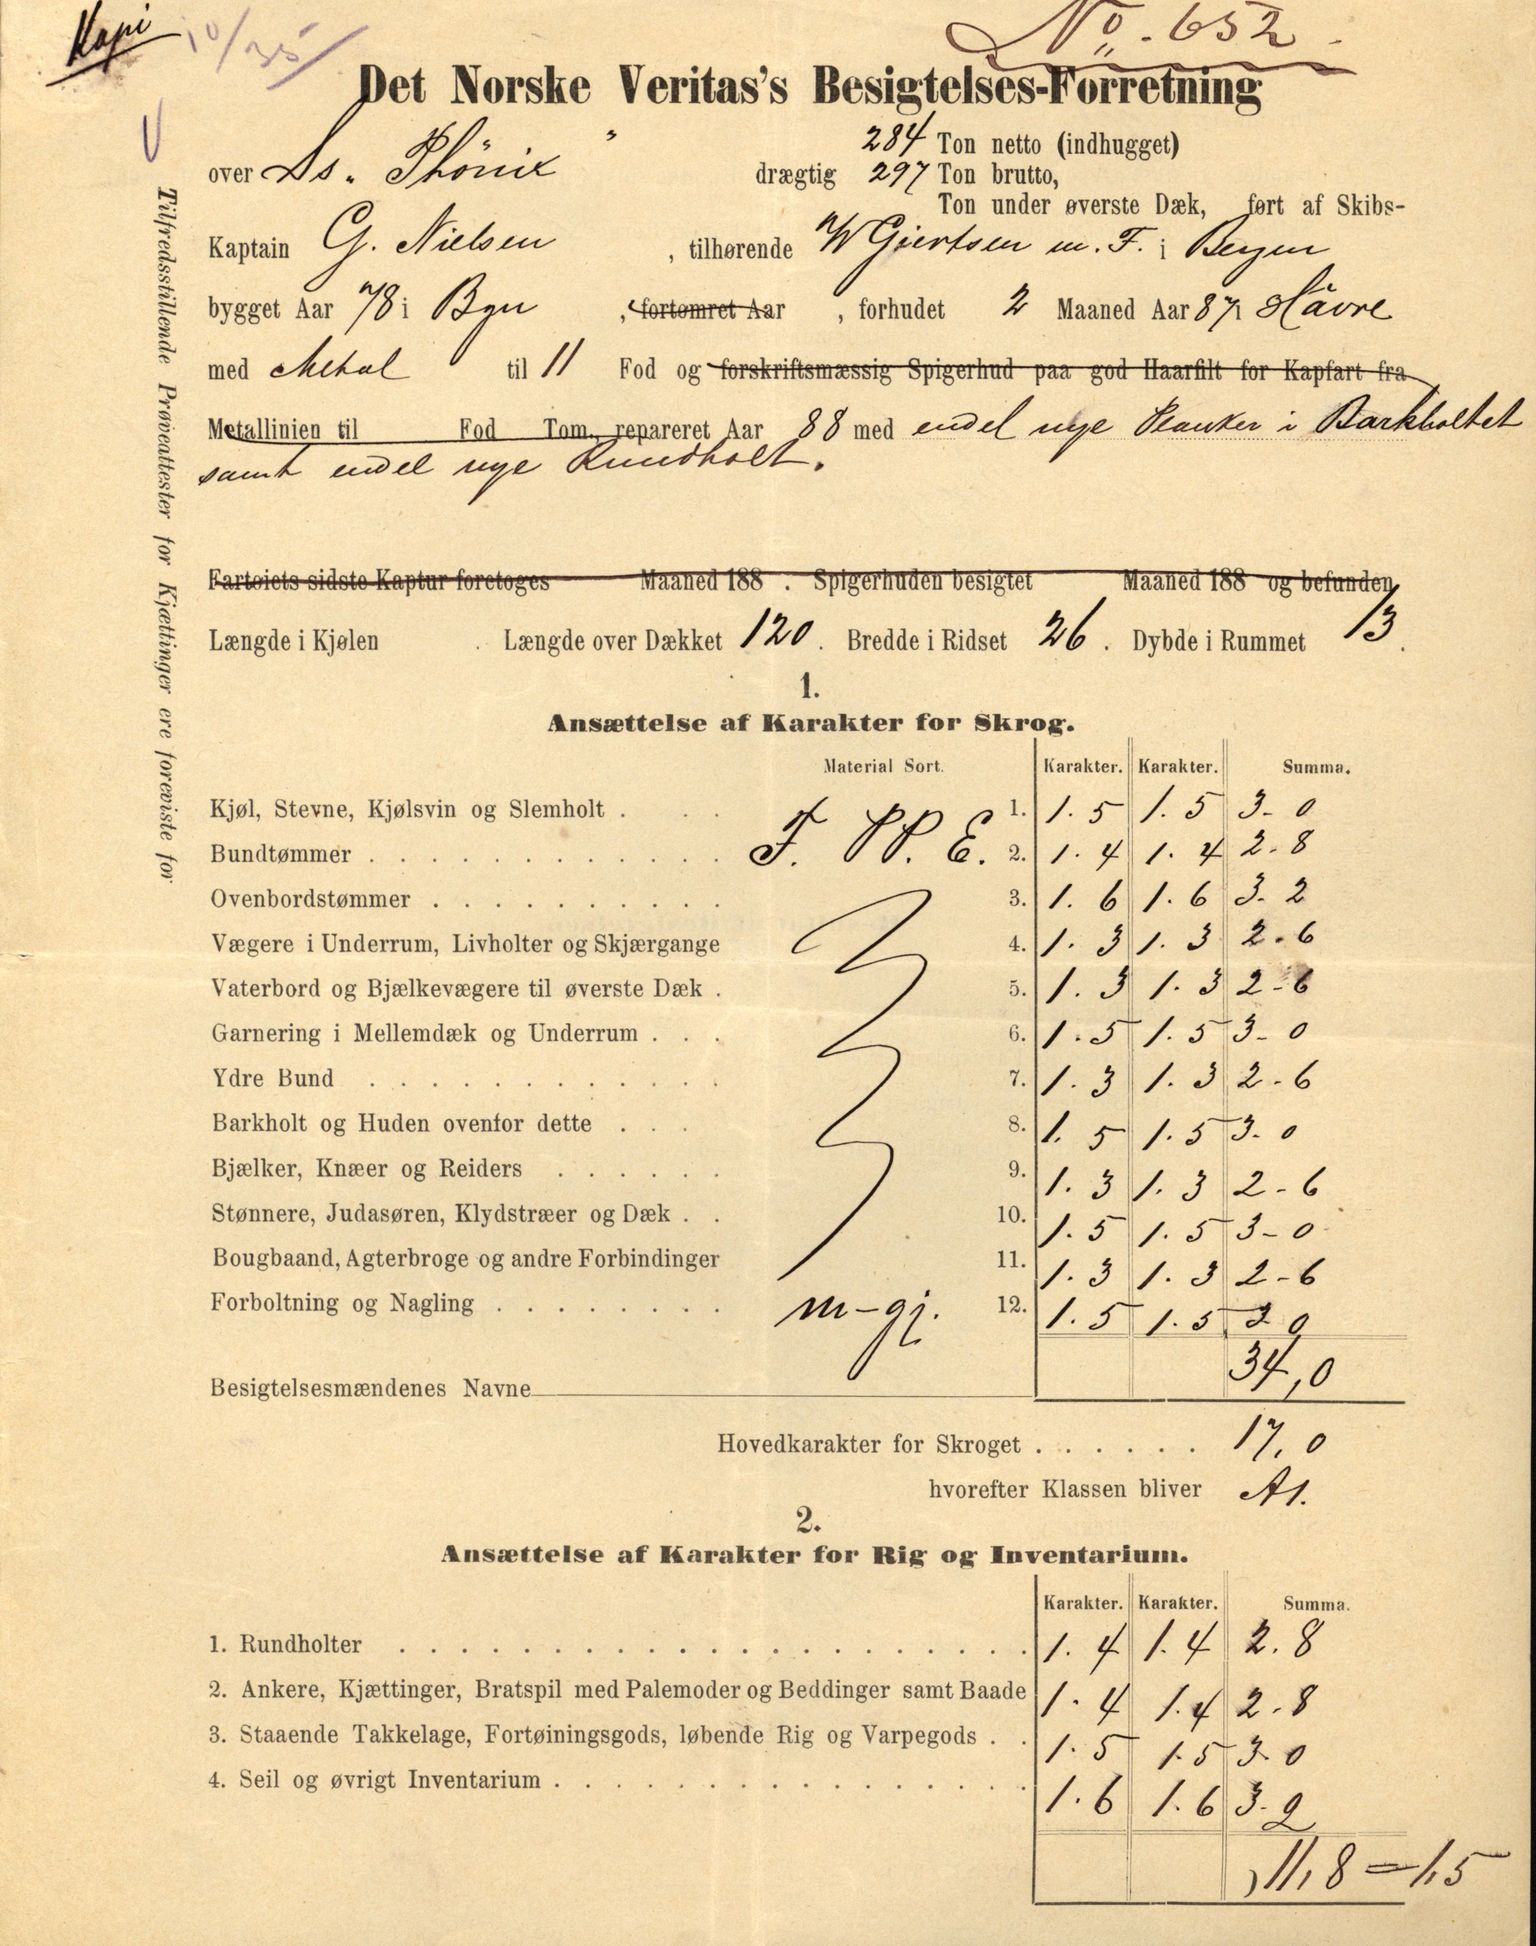 Kopi 10/35
No. 652
Det Norske Veritas's Besigtelses-Forretning
284 Ton netto (indhugget)
over Ss. "Phönix" drægtig 297 Ton brutto,
Ton under øverste Dæk, ført af Skibs-
Kaptain G. Nielsen , tilhørende W Giertsen m. F. i Bergen
bygget Aar 78 i Bgn , fortømret Aar , forhudet 2 Maaned Aar 87 i Hâvre
med Metal til 11 Fod og forskriftsmæssig Spigerhud paa god Haarfilt for Kapfart fra
Metallinien til Fod Tom., repareret Aar 88 med endel nye Planker i Barkholtet
samt endel nye Rundholt.
Fartøiets sidste Kaptur foretoges Maaned 188 . Spigerhuden besigtet Maaned 188 og befunden
Længde i Kjølen . Længde over Dækket 120 . Bredde i Ridset 26 . Dybde i Rummet 13 .
1.
Ansættelse af Karakter for Skrog.
Material Sort. Karakter. Karakter. Summa.
Kjøl, Stevne, Kjølsvin og Slemholt . . . 1. 1.5 1.5 3-0
Bundtømmer . . . . . . . . . . . F. PP. E. 2. 1.4 1.4 2.8
Ovenbordstømmer . . . . . . . . . 3. 1.6 1.6 3.2
Vægere i Underrum, Livholter og Skjærgange 4. 1.3 1.3 2.6
Vaterbord og Bjælkevægere til øverste Dæk . 5. 1.3 1.3 2-6
Garnering i Mellemdæk og Underrum . . . 6. 1.5 1.5 3-0
Ydre Bund . . . . . . . . . . . 7. 1.3 1.3 2-6
Barkholt og Huden ovenfor dette . . . 8. 1.5 1.5 3-0
Bjælker, Knæer og Reiders . . . . . . 9. 1.3 1.3 2-6
Stønnere, Judasøren, Klydstræer og Dæk . . 10. 1.5 1.5 3-0
Bougbaand, Agterbroge og andre Forbindinger 11. 1.3 1.3 2-6
Forboltning og Nagling . . . . . . . . m-gj. 12. 1.5 1.5 3 0
34,0
Besigtelsesmændenes Navne
Hovedkarakter for Skroget . . . . . . 17,0
hvorefter Klassen bliver A1.
2.
Ansættelse af Karakter for Rig og Inventarium.
Karakter. Karakter. Summa.
1. Rundholter . . . . . . . . . . . . . . . . . . . 1.4 1.4 2.8
2. Ankere, Kjættinger, Bratspil med Palemoder og Beddinger samt Baade 1.4 1.4 2.8
3. Staaende Takkelage, Fortøiningsgods, løbende Rig og Varpegods . . 1.5 1.5 3-0
4. Seil og øvrigt Inventarium . . . . . . . . . . . . . . . 1.6 1.6 3-2
11,8 = 1,5
Tilfredsstillende Prøveattester for Kjættinger ere foreviste for